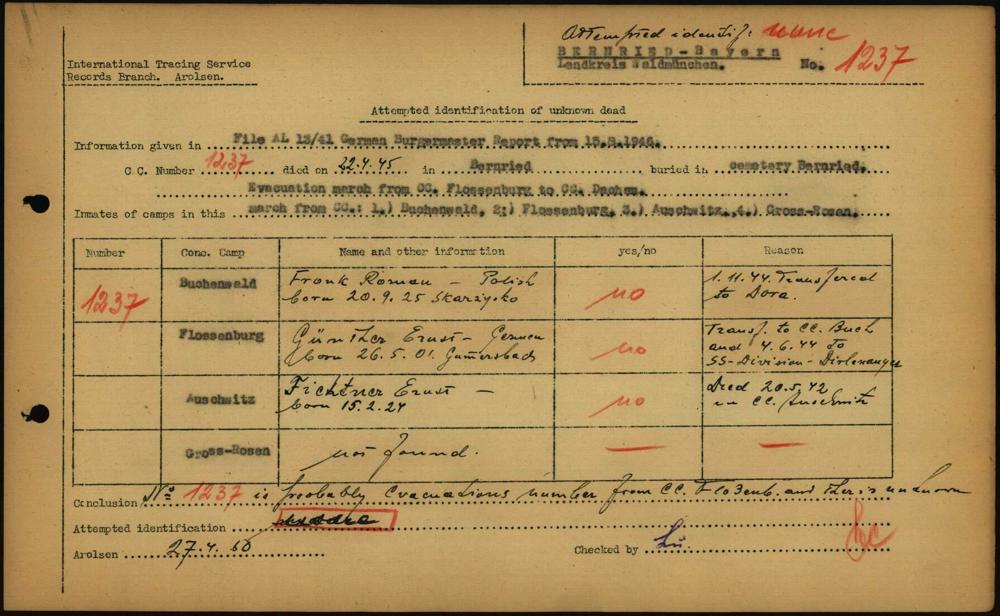 Attempted identif: none
BERNRIED-Bayern
Landkreis Waldmünchen.
No. 1237
International Tracing Service
Records Branch. Arolsen.
Attempted identification of unknown dead
Information given in File AL 13/41 German Burgermaster Report from 15.8.1946.
C.C. Number 1237 died on 22.4.45 in Bernried buried in cemetery Bernried.
Evacuation march from CC. Flossenburg to CC. Dachau.
Inmates of camps in this march from CC.: 1.) Buchenwald, 2.) Flossenburg, 3.) Auschwitz, 4.) Gross-Rosen.
Number Conc. Camp Name and other information yes/no Reason
1237
Buchenwald Frank Roman - Polish born 20.9.25 Skarżysko no 1.11.44 Transfered to Dora.
Flossenburg Günther Ernst - German born 26.5.01 Gumersbach no Transf. to CC. Buch and 4.6.44 to SS-Division-Dirlewanger
Auschwitz Fichtner Ernst - born 15.2.24 no Died 20.5.42 in CC. Auschwitz
Gross-Rosen not found. — —
Conclusion No 1237 is probably Evacuations number from CC. Floßenb. and ther is unknown
Attempted identification
Arolsen 27.4.60
Checked by Lü.